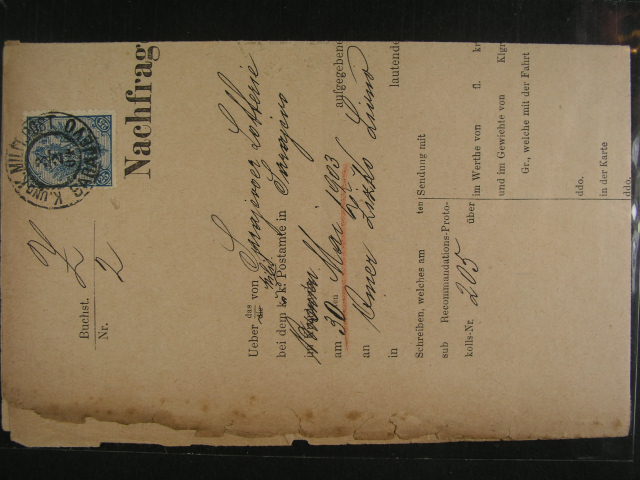 Nachfrag
K. UND K. MILIT. POST
SARAJEVO
Buchst. Z
Nr. 2
Ueber das von Sarajevoer Lotterie
bei dem k. k. Postamte in Sarajevo
am 30ten Mai 1903 aufgegebene
an Omer lautende
in
Schreiben, welches am ten
sub Recommandations-Proto-
kolls-Nr. 205 über
Sendung mit
im Werthe von fl. kr
und im Gewichte von Klgr
Gr., welche mit der Fahrt
ddo.
in der Karte
ddo.